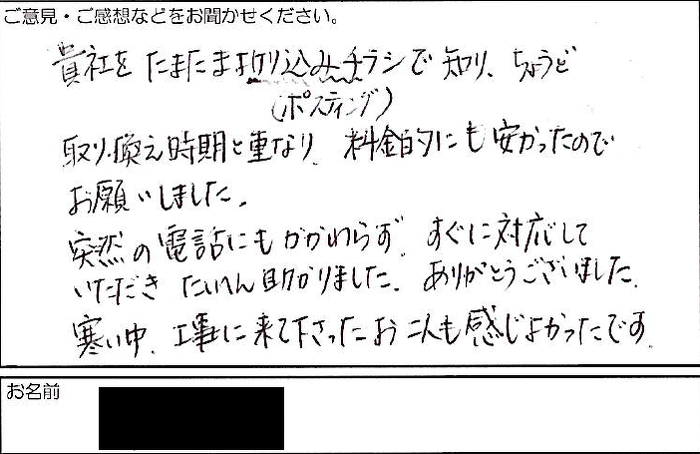 ご意見・ご感想などをお聞かせください。
貴社をたまたま折り込みチラシで知り、ちょうど
(ポスティング)
取り換え時期と重なり、料金的にも安かったので
お願いしました。
突然の電話にもかかわらず、すぐに対応して
いただきたいへん助かりました。ありがとうございました。
寒い中、工事に来て下さったお二人も感じよかったです。
お名前